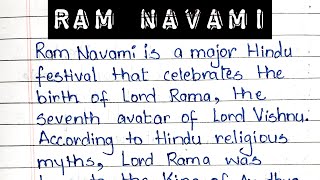 RAM NAVAMI
Ram Navami is a major Hindu
festival that celebrates the
birth of Lord Rama, the
seventh avatar of Lord Vishnu.
According to Hindu religious
myths, Lord Rama was
to the King of